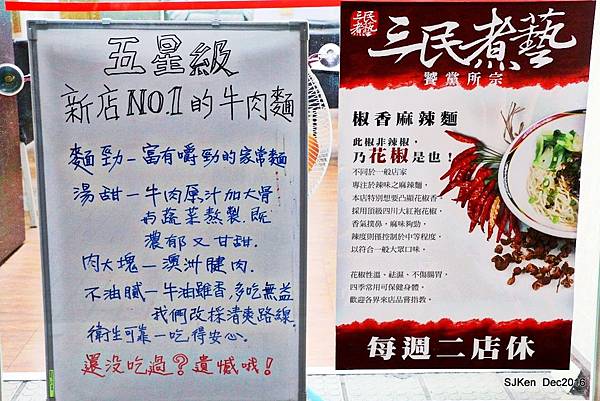 五星級
新店NO.1的牛肉麵
麵勁—富有嚼勁的家常麵
湯甜—牛肉原汁加大骨
与蔬菜熬製.既
濃郁又甘甜.
肉大塊—澳洲腱肉.
不油膩—牛油雖香,多吃無益
我們改採清爽路線
衛生可靠—吃得安心.
還没吃過?遺憾哦!
三民煮藝
三民煮藝
饕黨所宗
椒香麻辣麵
此椒非辣椒，
乃花椒是也！
不同於一般店家
專注於辣味之麻辣麵，
本店特別想要凸顯花椒香
採用頂級四川大紅袍花椒，
香氣撲鼻，麻味夠勁，
辣度則僅控制於中等程度，
以符合一般大眾口味。
花椒性溫、祛濕、不傷腸胃，
四季常用可保健身體。
歡迎各界來店品嘗指教。
每週二店休
SJKen Dec2016